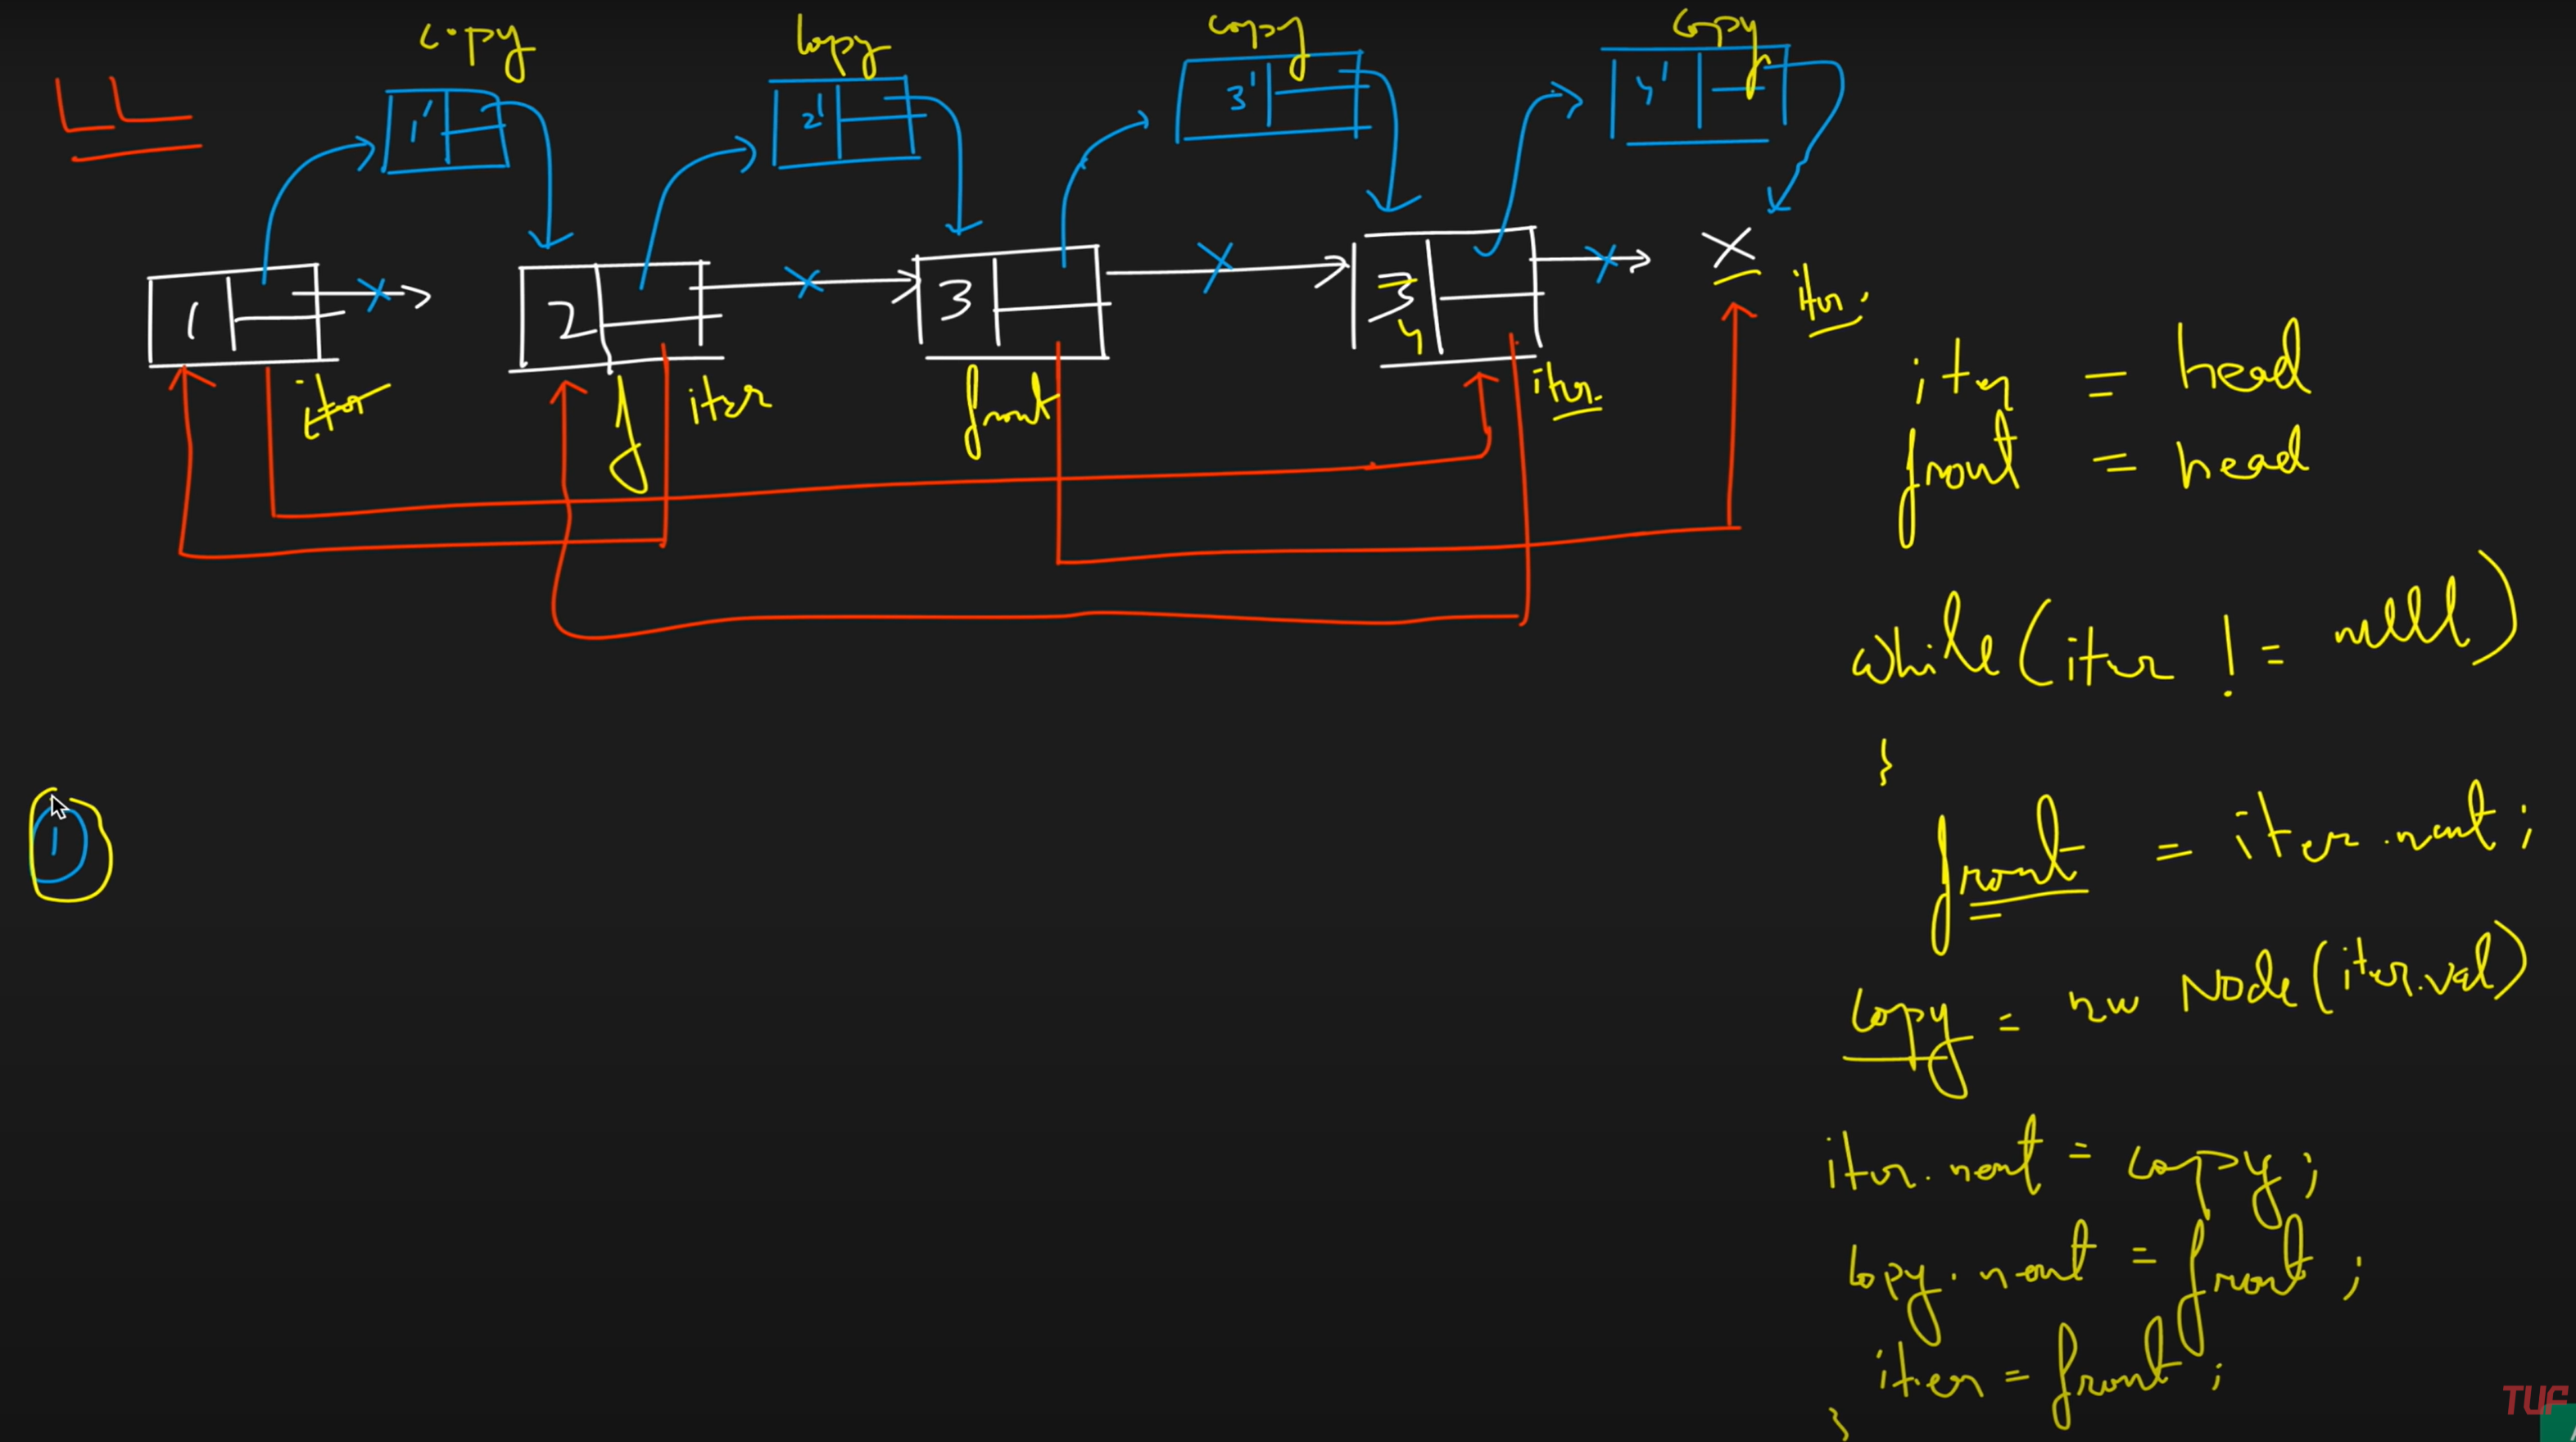 copy copy copy copy
LL
1' 2' 3' 4'
1 2 3 3 X
4
iter f iter front iter. iter.
iter = head
front = head
while(iter != null)
{
front = iter.next;
1
copy = new Node(iter.val)
iter.next = copy;
copy.next = front;
iter = front;
}
TUF